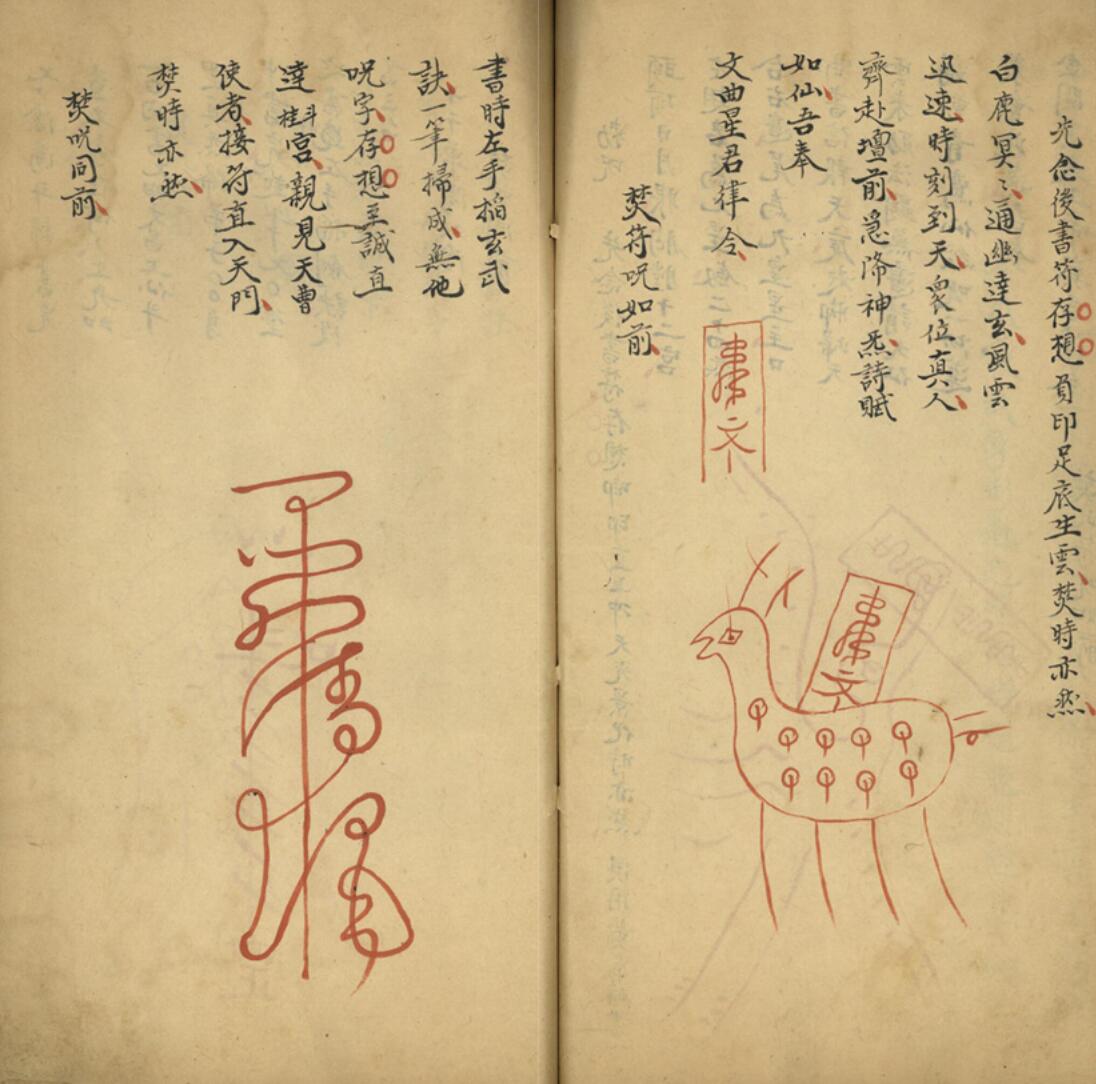 光念後書符存想員印足底生雲焚時亦然
白鹿冥〻通幽達玄風雲
迅速時刻到天眾位真人
齊赴壇前急降神炁詩賦
如仙吾奉
文曲星君律令
焚符呪如前
文
文
書時左手掐玄武
訣一筆掃成無他
呪字存想至誠直
達斗桂宮親見天曹
使者接符直入天門
焚時亦然
焚呪同前